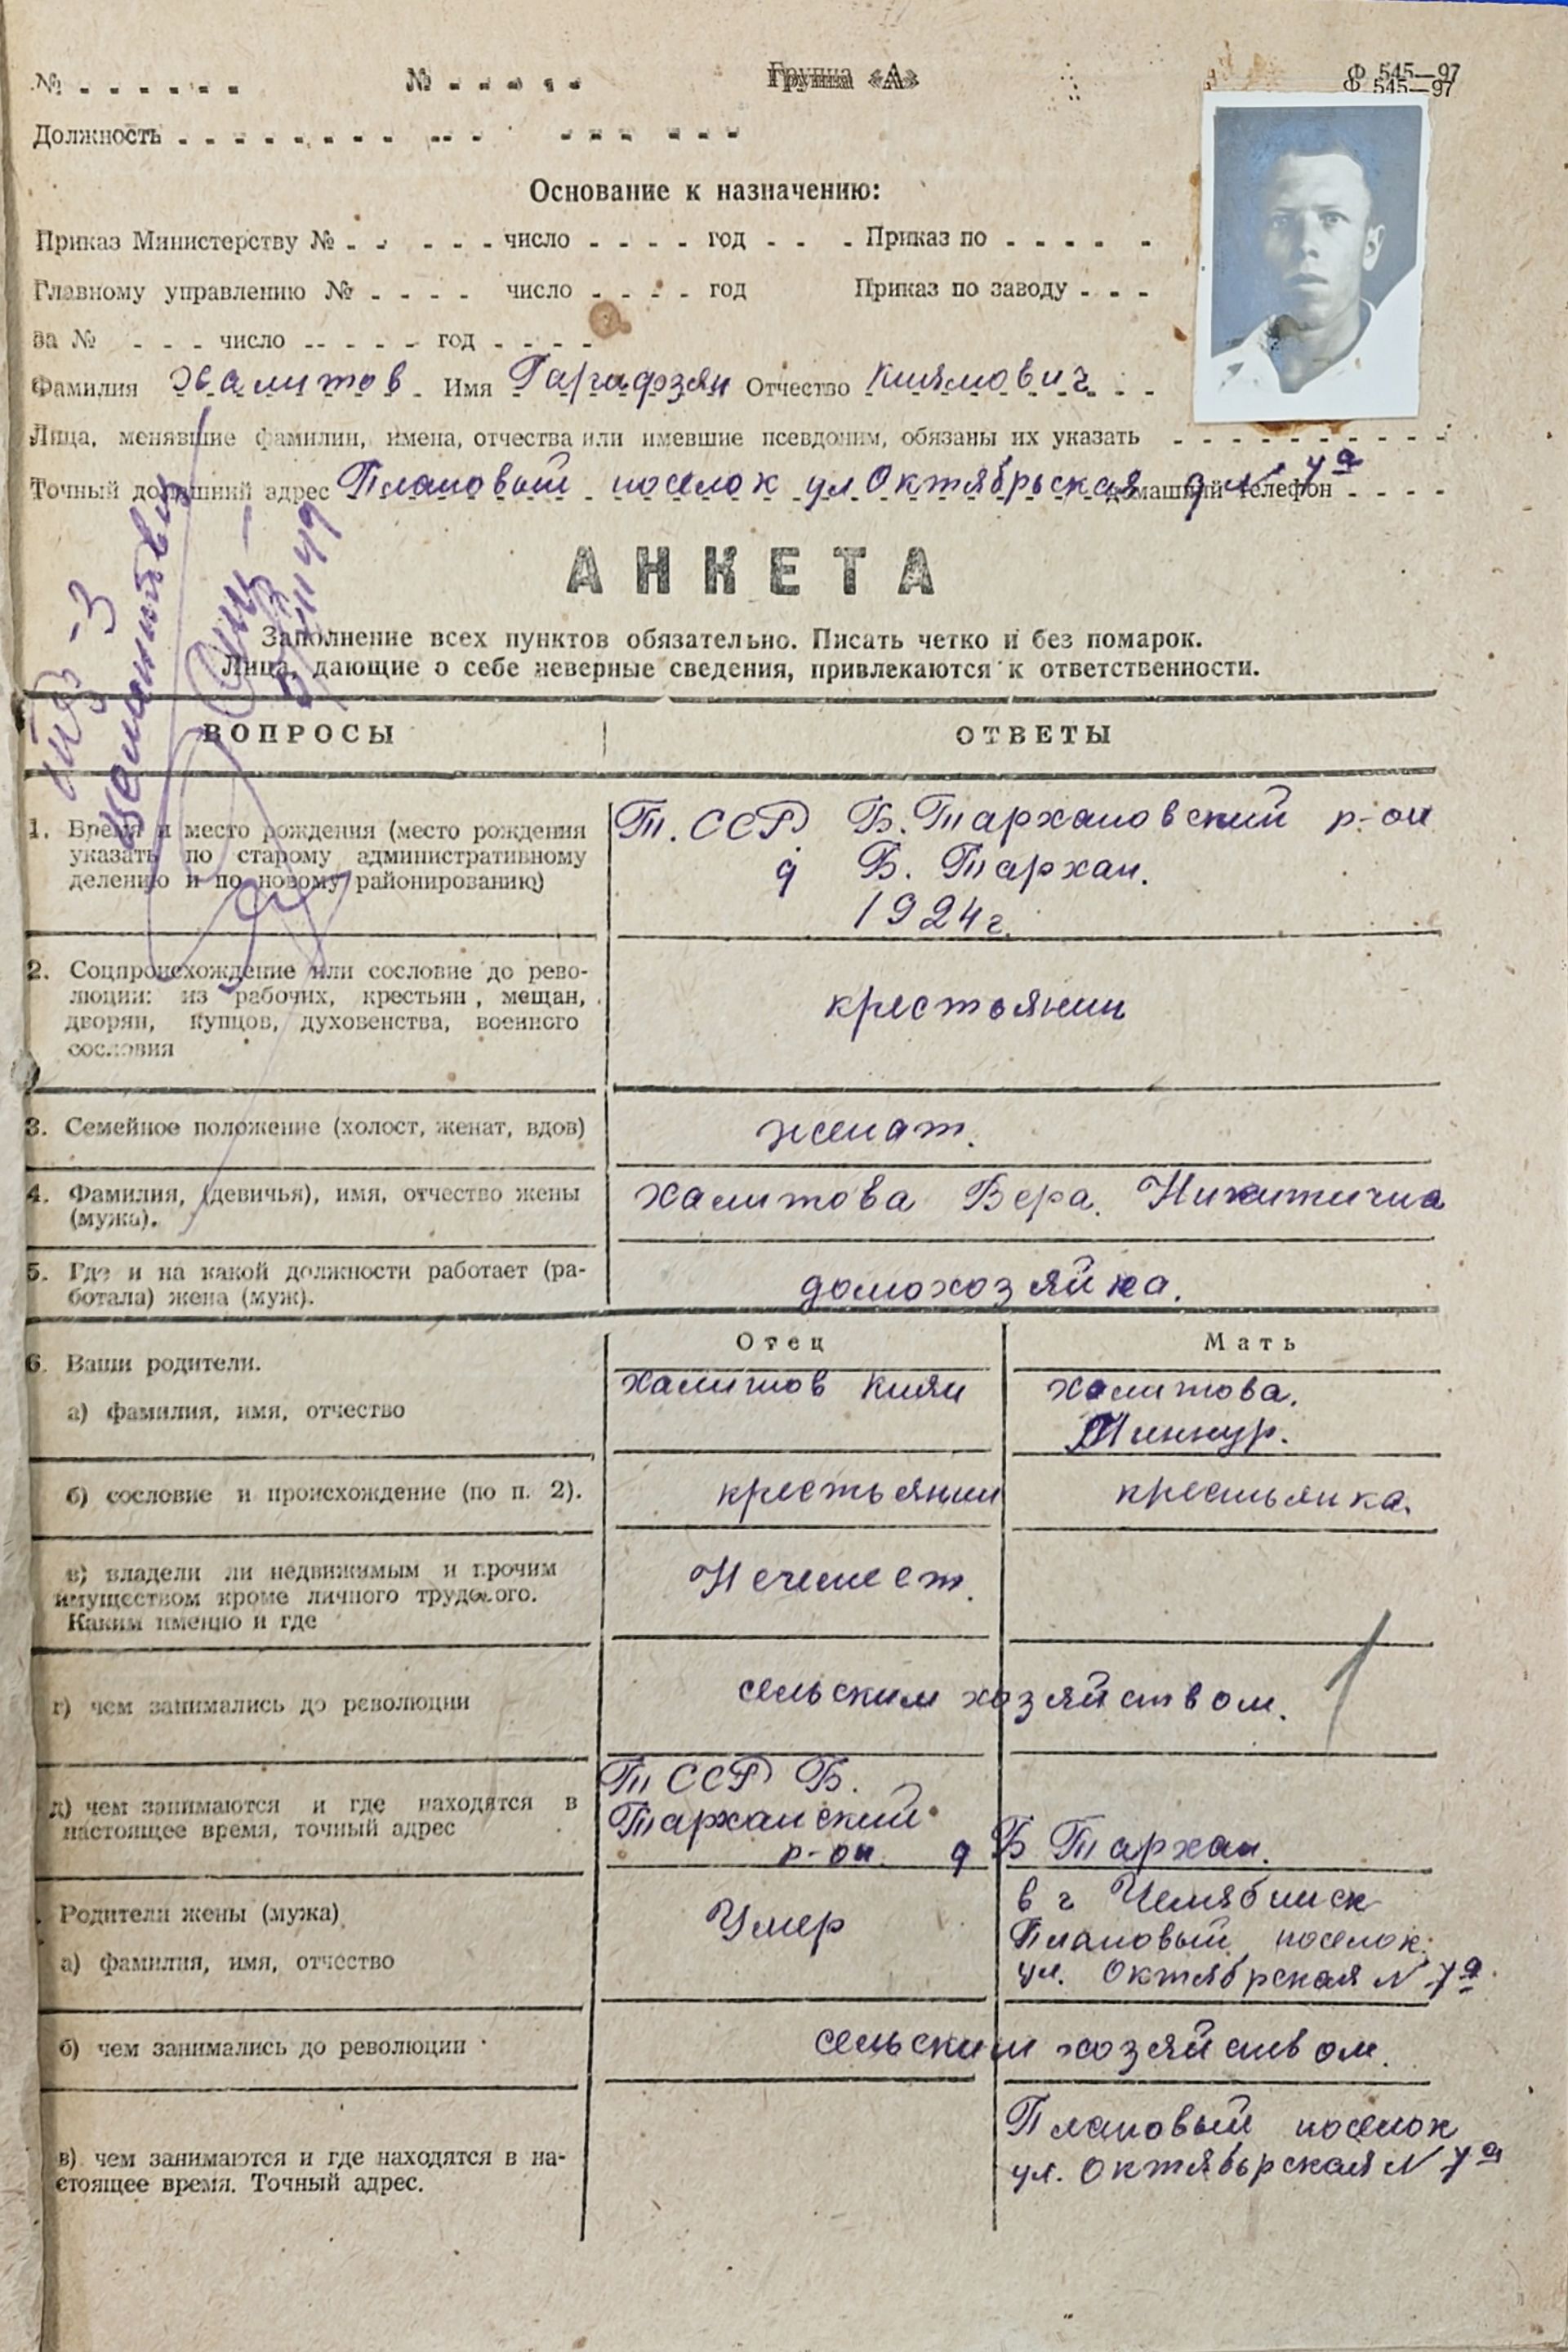 № . . . . . . № . . . . . Группа «А» Ф 545—97
Ф 545—97
Должность . . . . . . . . . . . . . . . . .
Основание к назначению:
Приказ Министерству № . . . . . число . . . . год . . . Приказ по . . . . .
Главному управлению № . . . . число . . . . год Приказ по заводу . . .
за № . . . число . . . . . год . . . .
Фамилия Халитов Имя Гарафзян Отчество Киямович
Лица, менявшие фамилии, имена, отчества или имевшие псевдоним, обязаны их указать . . . . . . . . . .
Точный домашний адрес Плановый поселок ул Октябрьская д № 7а домашний телефон . . . .
АНКЕТА
Заполнение всех пунктов обязательно. Писать четко и без помарок.
Лица, дающие о себе неверные сведения, привлекаются к ответственности.
ВОПРОСЫ ОТВЕТЫ
1. Время и место рождения (место рождения
указать по старому административному
делению и по новому районированию)
Т. ССР Б. Тархановский р-он
д Б. Тархан.
1924 г.
2. Соцпроисхождение или сословие до рево-
люции: из рабочих, крестьян, мещан,
дворян, купцов, духовенства, военного
сословия
крестьянин
3. Семейное положение (холост, женат, вдов)
женат.
4. Фамилия, (девичья), имя, отчество жены
(мужа).
Халитова Вера. Никитична
5. Где и на какой должности работает (ра-
ботала) жена (муж).
домохозяйка.
Отец Мать
6. Ваши родители.
а) фамилия, имя, отчество
Халитов Киям
Халитова.
Миннур.
б) сословие и происхождение (по п. 2).
крестьянин крестьянка.
в) владели ли недвижимым и прочим
имуществом кроме личного трудового.
Каким именно и где
Неимеет.
г) чем занимались до революции
сельским хозяйством.
д) чем занимаются и где находятся в
настоящее время, точный адрес
Т ССР Б.
Тарханский
р-он. д Б Тархан.
Родители жены (мужа)
а) фамилия, имя, отчество
Умер
в г Челябинск
Плановый поселок
ул. Октябрская № 7а.
б) чем занимались до революции
сельским хозяйством.
в) чем занимаются и где находятся в на-
стоящее время. Точный адрес.
Плановый поселок
ул. Октябьрская № 7а